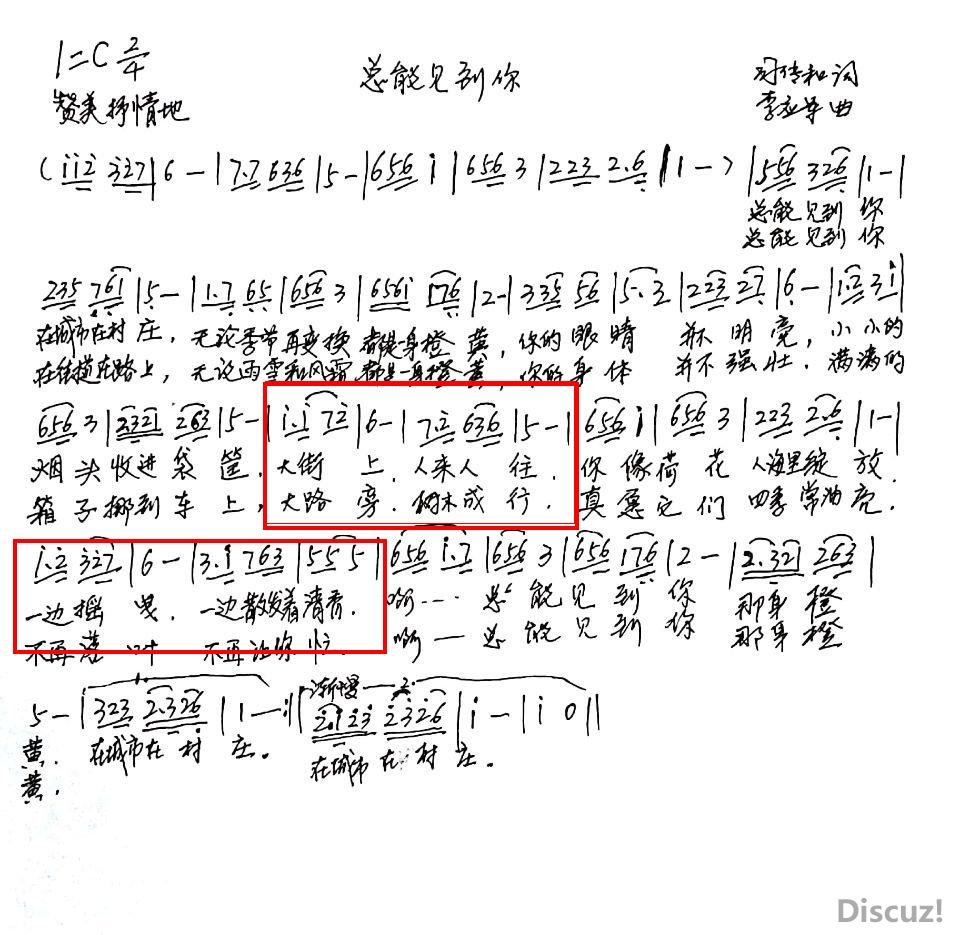 1=C 2/4
总能见到你
赞美 抒情地
司传和词
李应军曲
(i i 2 3 2 7 | 6 - | 7. 7 6 3 6 | 5 - | 6 5 6 i | 6 5 6 3 | 2 2 3 2. 6 | 1 - ) | 5 5 6 3 2 6 | 1 - |
总能见到 你
总能见到 你
2 3 5 7 6 1 | 5 - | 1. 7 6 5 | 6 5 6 3 | 6 5 6 i i 7 6 | 2 - | 3 3 5 5 6 | 5. 3 | 2 2 3 2 7 | 6 - | 1. 2 3 i |
在城市在村 庄, 无论季节再变换 都是一身橙 黄, 你的眼睛 并不 明 亮, 小小的
在街道在路上, 无论雨雪和风霜 都是一身橙 黄, 你的身体 并不强壮. 满满的
6 5 6 3 | 2 3 2 1 2 6 3 | 5 - | i. i 7 2 | 6 - | 7 2 6 3 6 | 5 - | 6 5 6 i | 6 5 6 3 | 2 2 3 2. 6 | 1 - |
烟头收进袋筐. 大街 上, 人来人 往. 你 像荷 花 人海里绽 放.
箱子挪到车 上, 大路 旁. 树木成 行. 真 愿它 们 四季常油亮.
1. 2 3 2 7 | 6 - | 3. i 7 6 3 | 5 5 5 | 6 5 6 i. 7 | 6 5 6 3 | 6 5 6 1 7 6 | 2 - | 2. 3 2 1 2 6 3 |
一边摇 曳, 一边散发着清香. 啊…… 总 能见 到 你 那身 橙
不再落 叶 不再让你 忙. 啊— 总 能见 到 你 那身 橙
5 - | 3 2 3 2. 3 2 6 | 1 - :|| 渐慢 2. 2. 1 2 3 2 3 2 6 | i - | i 0 ||
黄. 在城市在 村 庄。 在城市 在 村 庄.
黄.
Discuz!